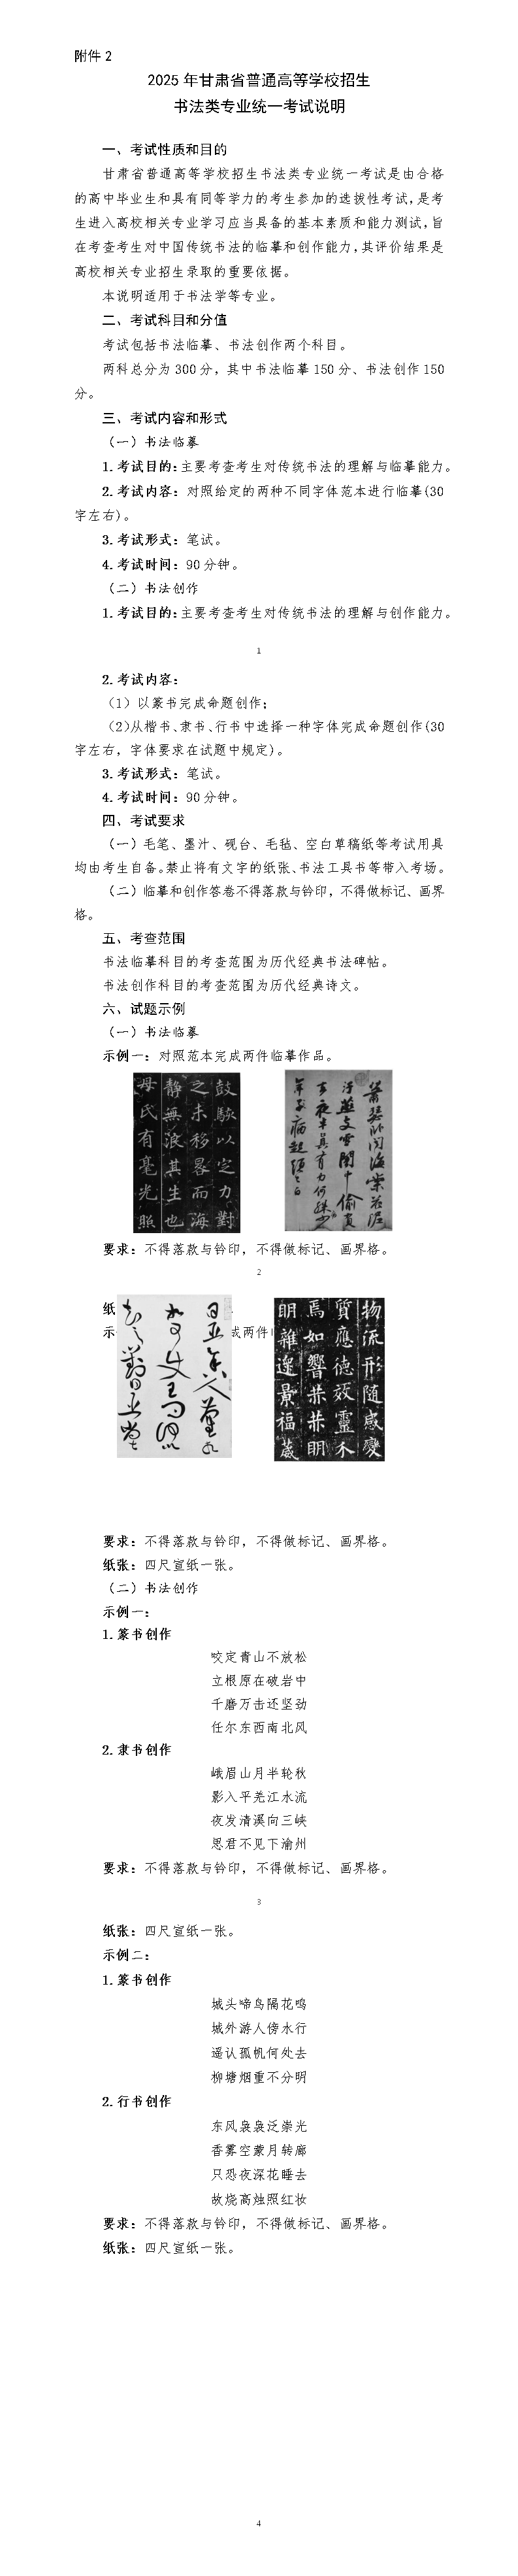 附件 2
2025 年甘肃省普通高等学校招生
书法类专业统一考试说明
一、考试性质和目的
甘肃省普通高等学校招生书法类专业统一考试是由合格
的高中毕业生和具有同等学力的考生参加的选拔性考试,是考
生进入高校相关专业学习应当具备的基本素质和能力测试,旨
在考查考生对中国传统书法的临摹和创作能力,其评价结果是
高校相关专业招生录取的重要依据。
本说明适用于书法学等专业。
二、考试科目和分值
考试包括书法临摹、书法创作两个科目。
两科总分为 300 分，其中书法临摹 150 分、书法创作 150
分。
三、考试内容和形式
（一）书法临摹
1.考试目的:主要考查考生对传统书法的理解与临摹能力。
2.考试内容：对照给定的两种不同字体范本进行临摹(30
字左右)。
3.考试形式：笔试。
4.考试时间：90 分钟。
（二）书法创作
1.考试目的:主要考查考生对传统书法的理解与创作能力。
1
2.考试内容：
（1）以篆书完成命题创作；
（2)从楷书、隶书、行书中选择一种字体完成命题创作(30
字左右，字体要求在试题中规定)。
3.考试形式：笔试。
4.考试时间：90 分钟。
四、考试要求
（一）毛笔、墨汁、砚台、毛毡、空白草稿纸等考试用具
均由考生自备。禁止将有文字的纸张、书法工具书等带入考场。
（二）临摹和创作答卷不得落款与钤印，不得做标记、画界
格。
五、考查范围
书法临摹科目的考查范围为历代经典书法碑帖。
书法创作科目的考查范围为历代经典诗文。
六、试题示例
（一）书法临摹
示例一：对照范本完成两件临摹作品。
鼓駭以定力對
之未移晷而海
靜無浪其生也
毋氏有毫光照
要求：不得落款与钤印，不得做标记、画界格。
2
纸
示
成两件
物流形隨感變
質應德效靈不
焉如響恭恭明
明雜遝景福葳
要求：不得落款与钤印，不得做标记、画界格。
纸张：四尺宣纸一张。
（二）书法创作
示例一：
1.篆书创作
咬定青山不放松
立根原在破岩中
千磨万击还坚劲
任尔东西南北风
2.隶书创作
峨眉山月半轮秋
影入平羌江水流
夜发清溪向三峡
思君不见下渝州
要求：不得落款与钤印，不得做标记、画界格。
3
纸张：四尺宣纸一张。
示例二：
1.篆书创作
城头啼鸟隔花鸣
城外游人傍水行
遥认孤帆何处去
柳塘烟重不分明
2.行书创作
东风袅袅泛崇光
香雾空蒙月转廊
只恐夜深花睡去
故烧高烛照红妆
要求：不得落款与钤印，不得做标记、画界格。
纸张：四尺宣纸一张。
4